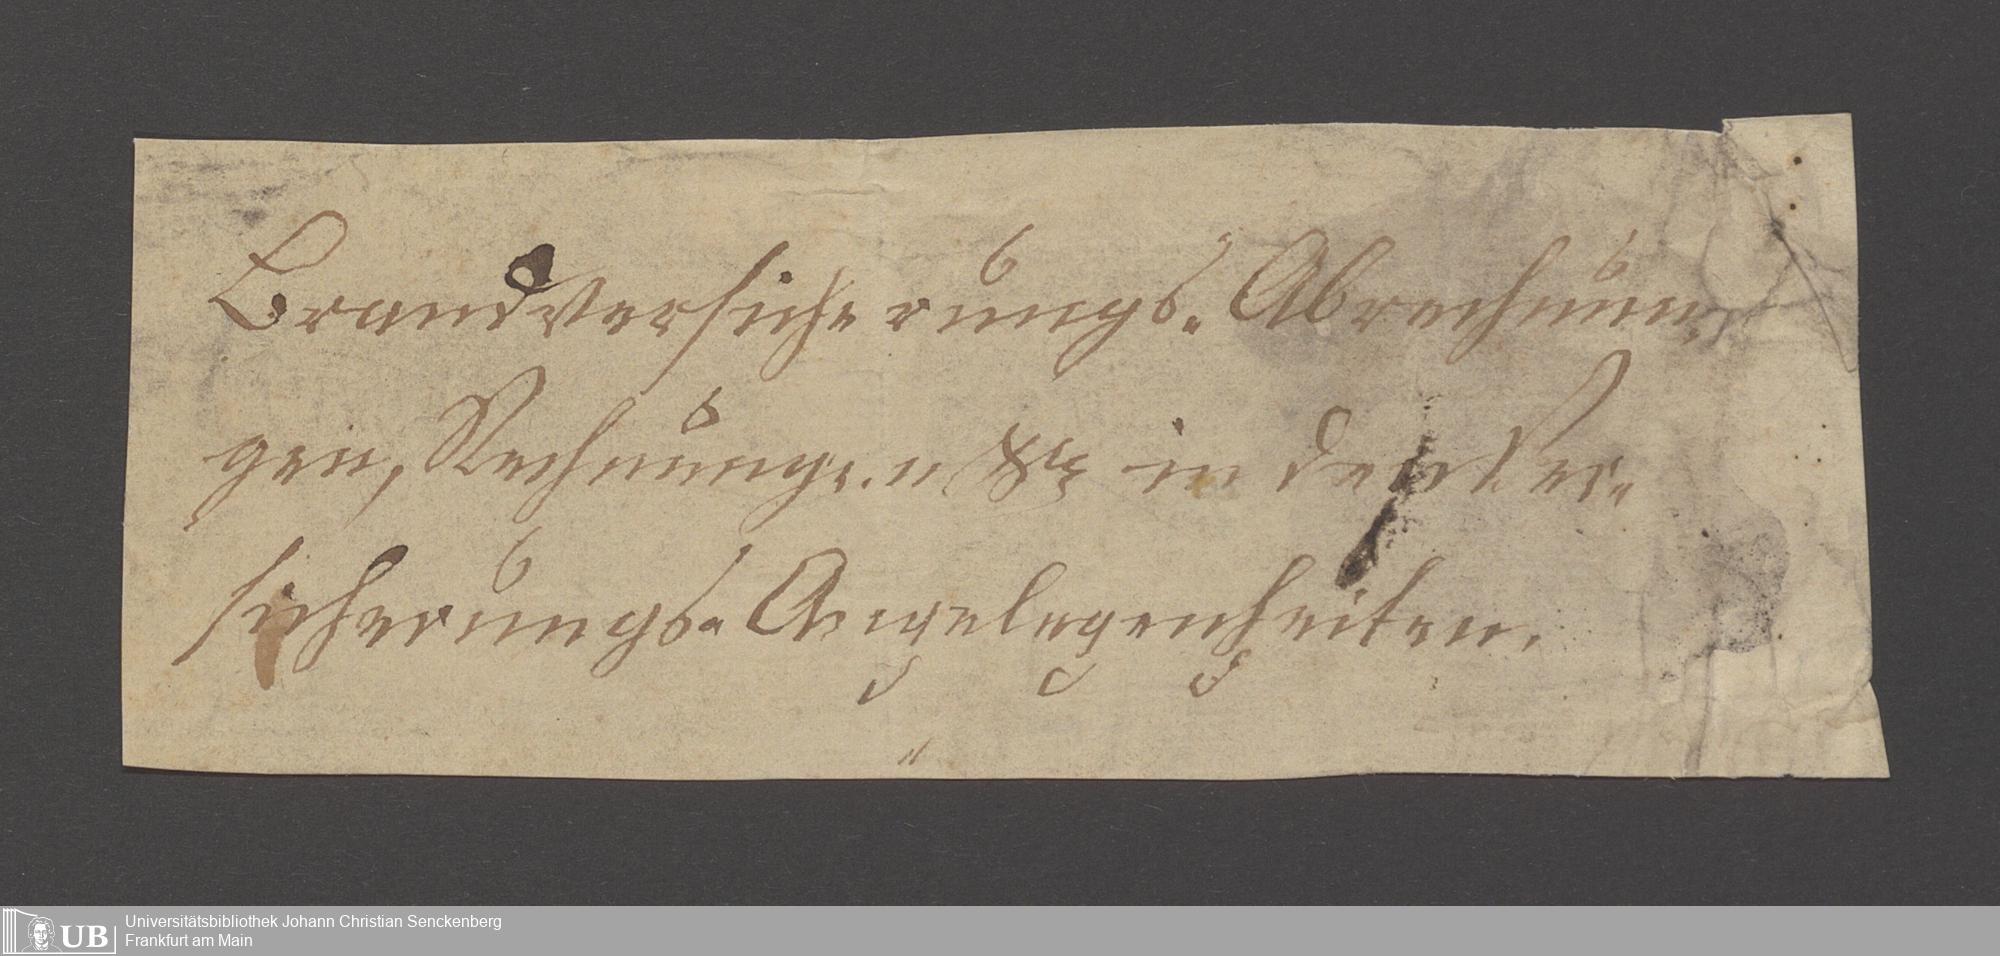 Brandversicherungs- Abrechnun-
gen, Rechnungen &c in den Ver-
sicherungs- Angelegenheiten.
UB
Universitätsbibliothek Johann Christian Senckenberg
Frankfurt am Main